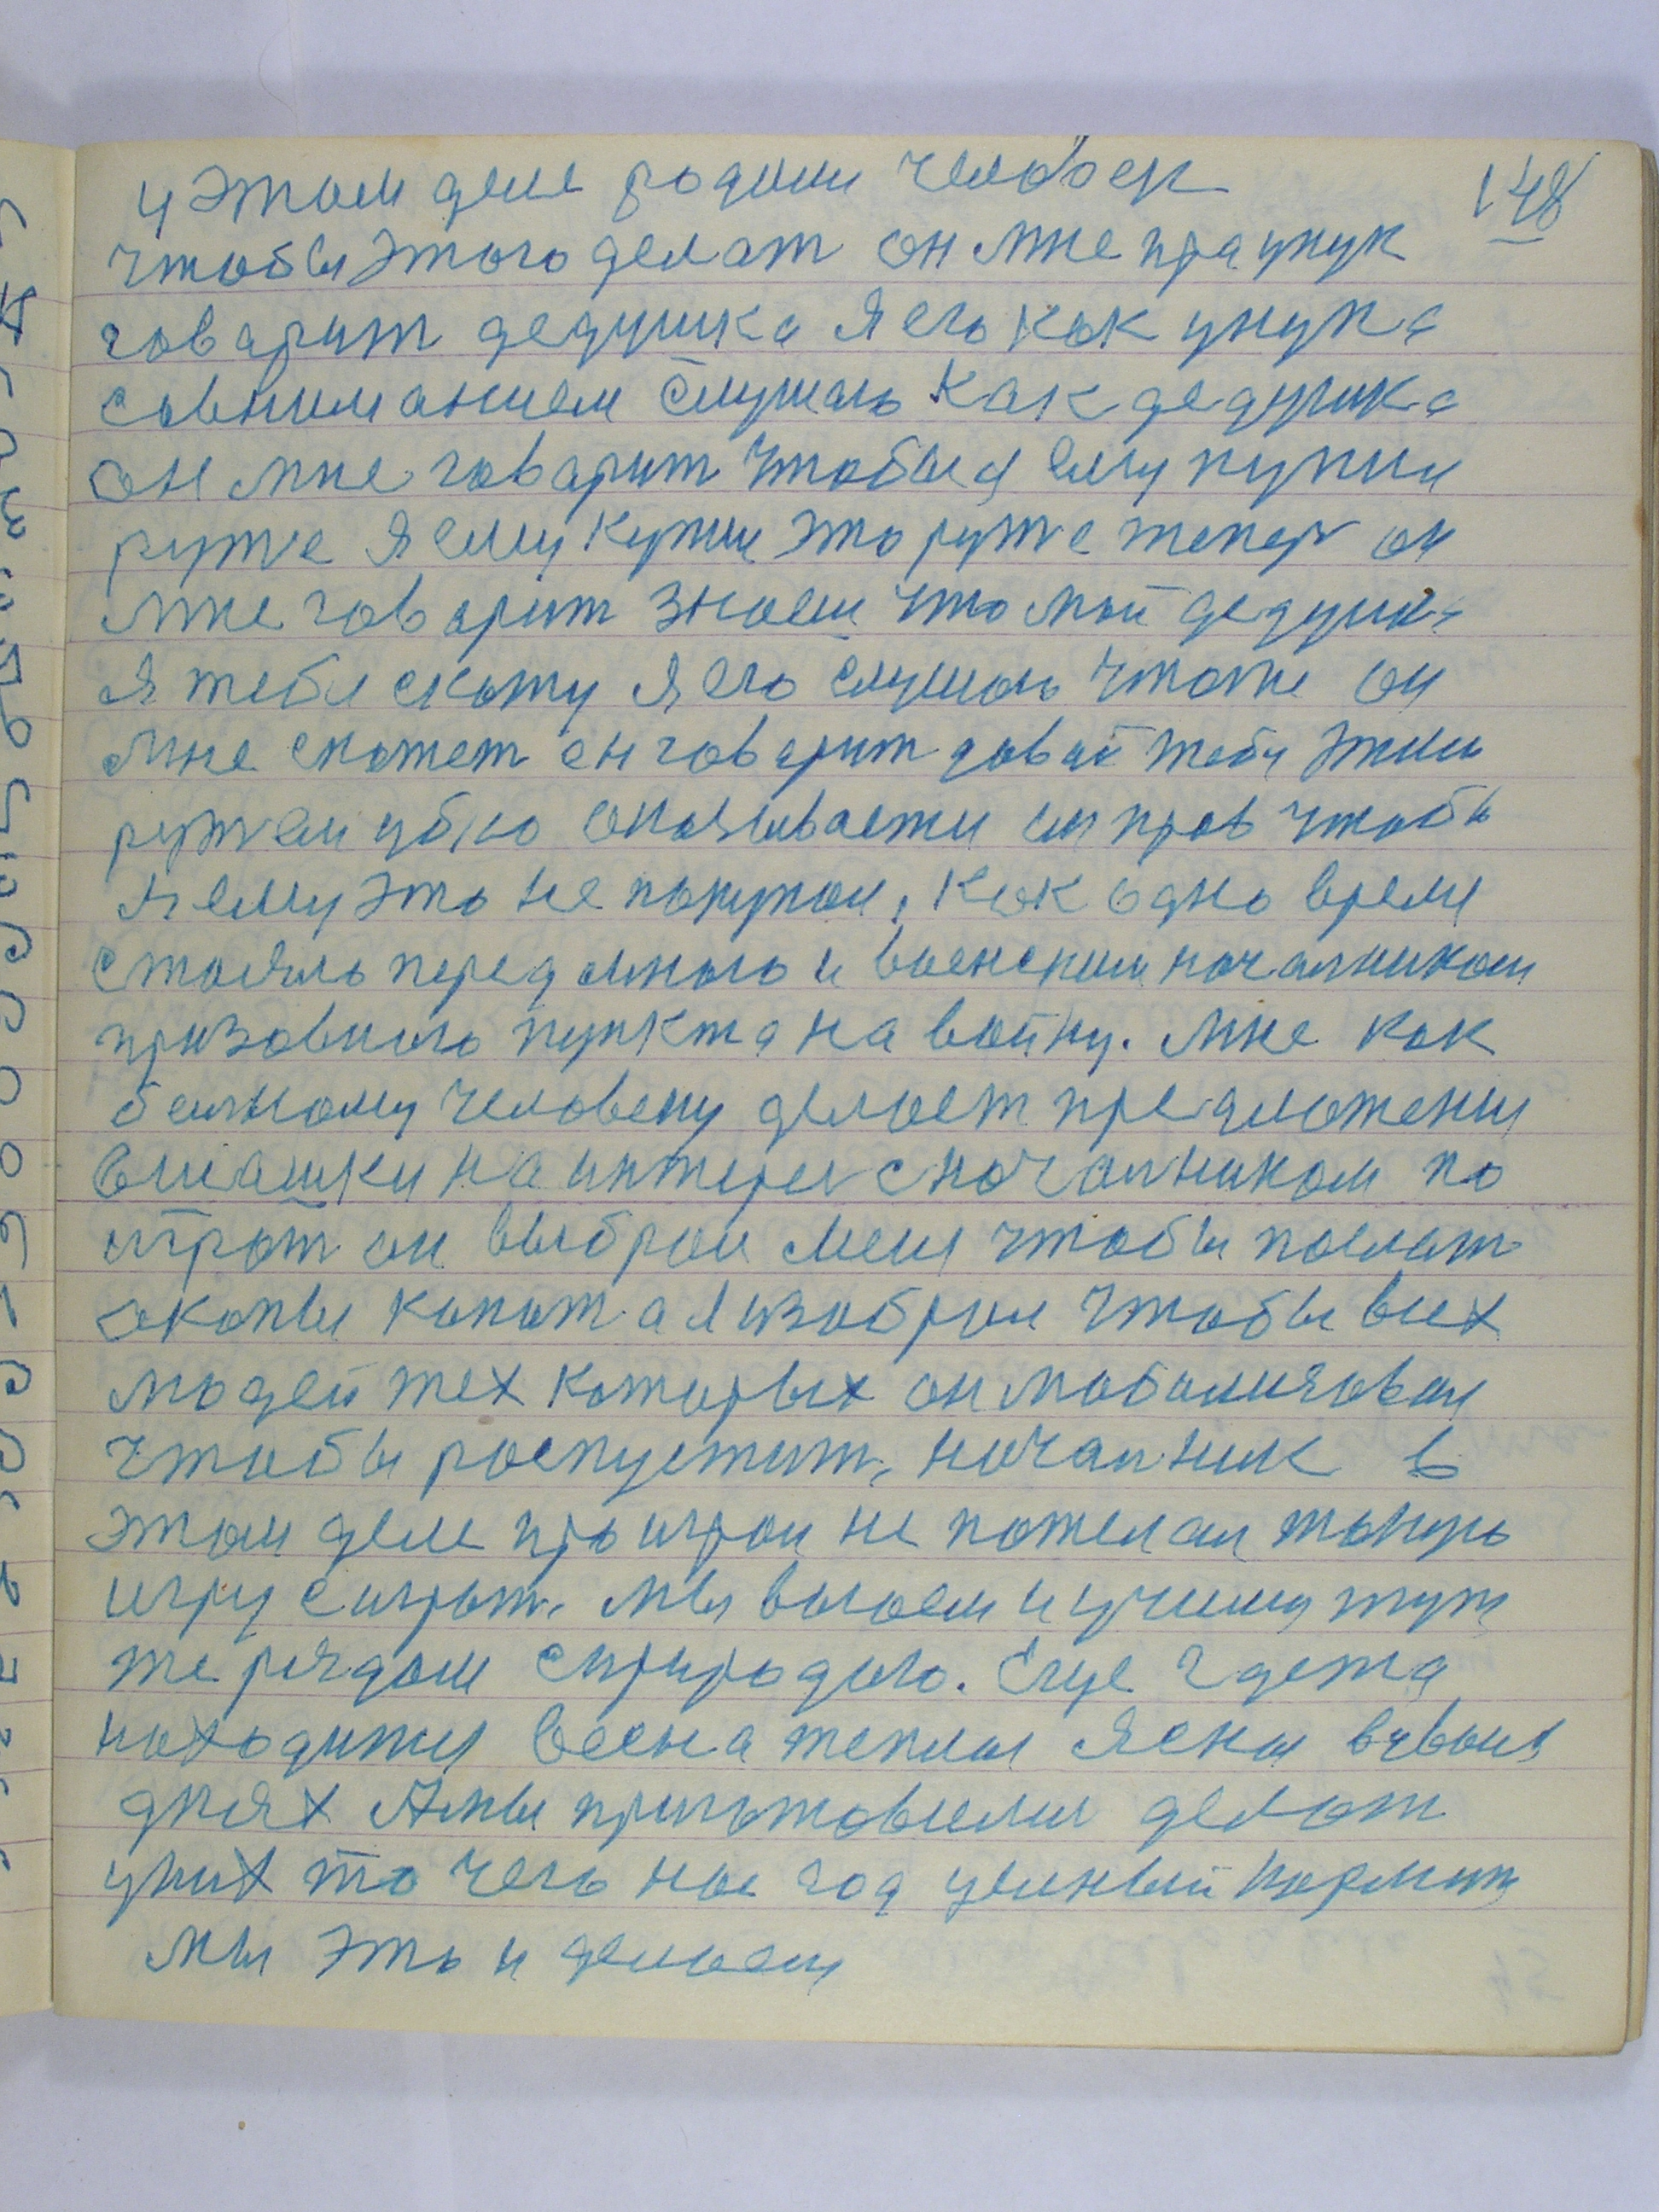 148
у этом деле родили человек
чтобы этого делат он мне праунук
говарит дедушка я его как унука
совниманием слушаю как дедушка
он мне говарит чтобы я ему купил
руже я ему купил это руже тепер он
мне говарит знаеш что мой дедушка
я тебе скажу я его слушаю чтоже он
мне скажет он говарит давай тебя этим
ружем убю оказывается он прав чтобы
я ему это не покупал, как одно время
стояло передомною и военским началником
призовного пункта на войну. Мне как
болному человеку делает предложения
вшашки на интерес сначалником по
играт он выбрал меня чтобы послат
окопы копат а я избрал чтобы всех
людей тех которых он мобализовал
чтобы роспустит, началник в
этом деле проиграл не пожелал такую
игру сиграт. Мы вызаем и учимся тут
же рядом сприродою. Еще гдета
находится весна теплая ясная всвоих
днях А мы приготовилися делат
уних то чего нас год целный кормит
мы это и делаем